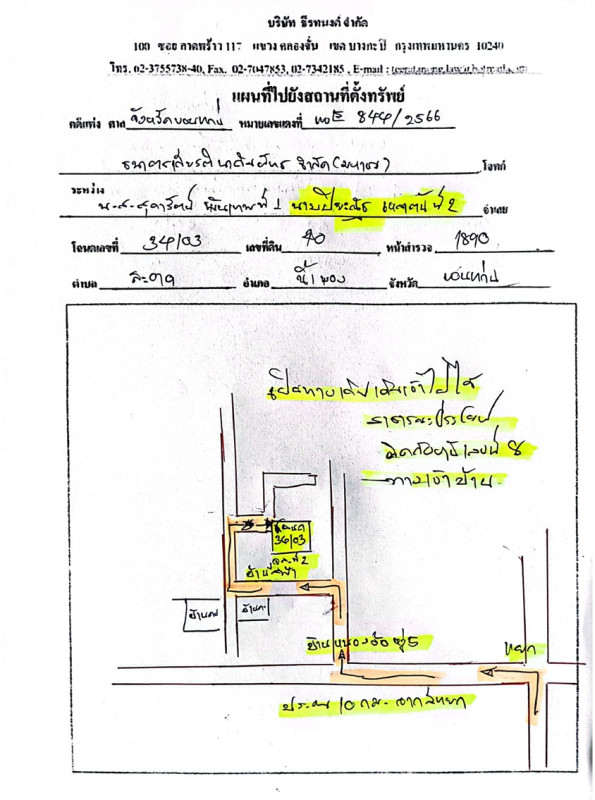 บริษัท ธีรทนงค์ จำกัด
100 ซอย ลาดพร้าว 117 แขวง คลองจั่น เขต บางกะปิ กรุงเทพมหานคร 10240
โทร. 02-3755738-40, Fax. 02-7047853, 02-7342185 , E-mail :
แผนที่ไปยังสถานที่ตั้งทรัพย์
คดีแพ่ง ศาล จังหวัดขอนแก่น หมายเลขแดงที่ ผบE 844/2566
ธนาคารเกียรตินาคินภัทร จำกัด (มหาชน) โจทก์
ระหว่าง
น.ส.สุดารัตน์ ที่ 1 นายปิยะณัฐ ที่ 2 จำเลย
โฉนดเลขที่ 34103 เลขที่ดิน 40 หน้าสำรวจ 1890
ตำบล สะอาด อำเภอ น้ำพอง จังหวัด ขอนแก่น
เป็นทางเดินเข้าไปได้
สาธารณะประโยชน์
ติดกับบ้านเลขที่ 8
ทางเข้าบ้าน
โฉนด
34103
จล.ที่ 2
บ้านคน
หมู่ 5
แยก
ประมาณ 10 กม. จากสี่แยก